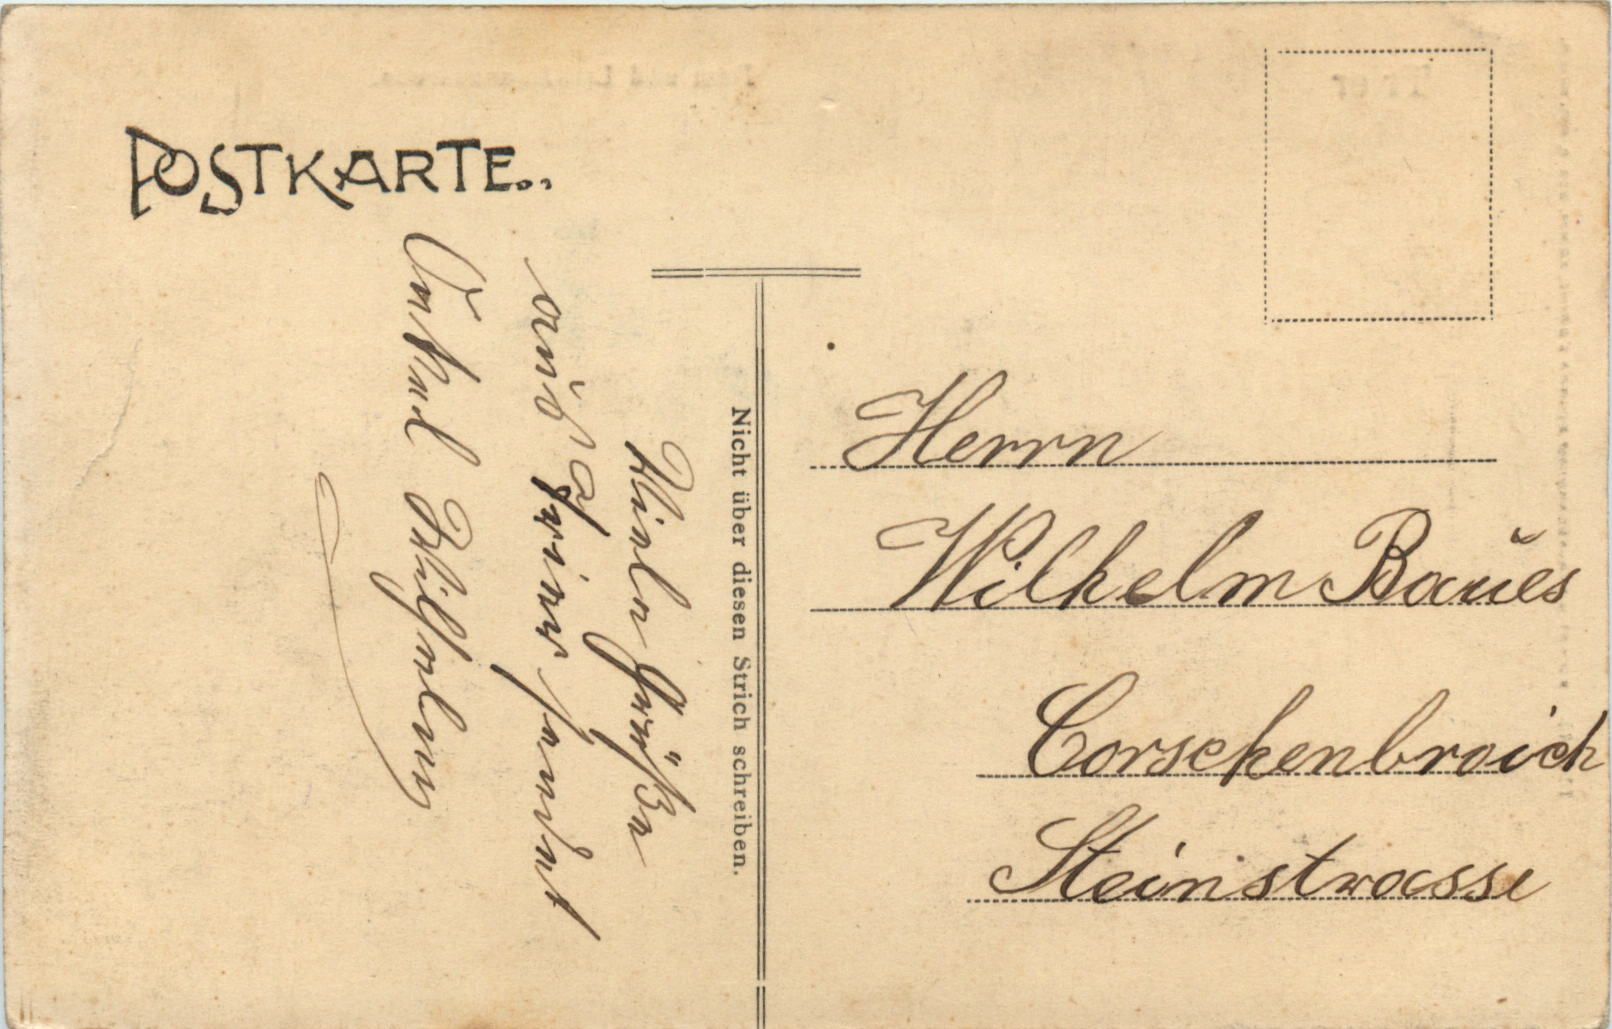 POSTKARTE..
Viele Grüße
aus Trier sendet
Onkel Wilhelm
Nicht über diesen Strich schreiben.
Herrn
Wilhelm Baues
Corschenbroich
Steinstrasse